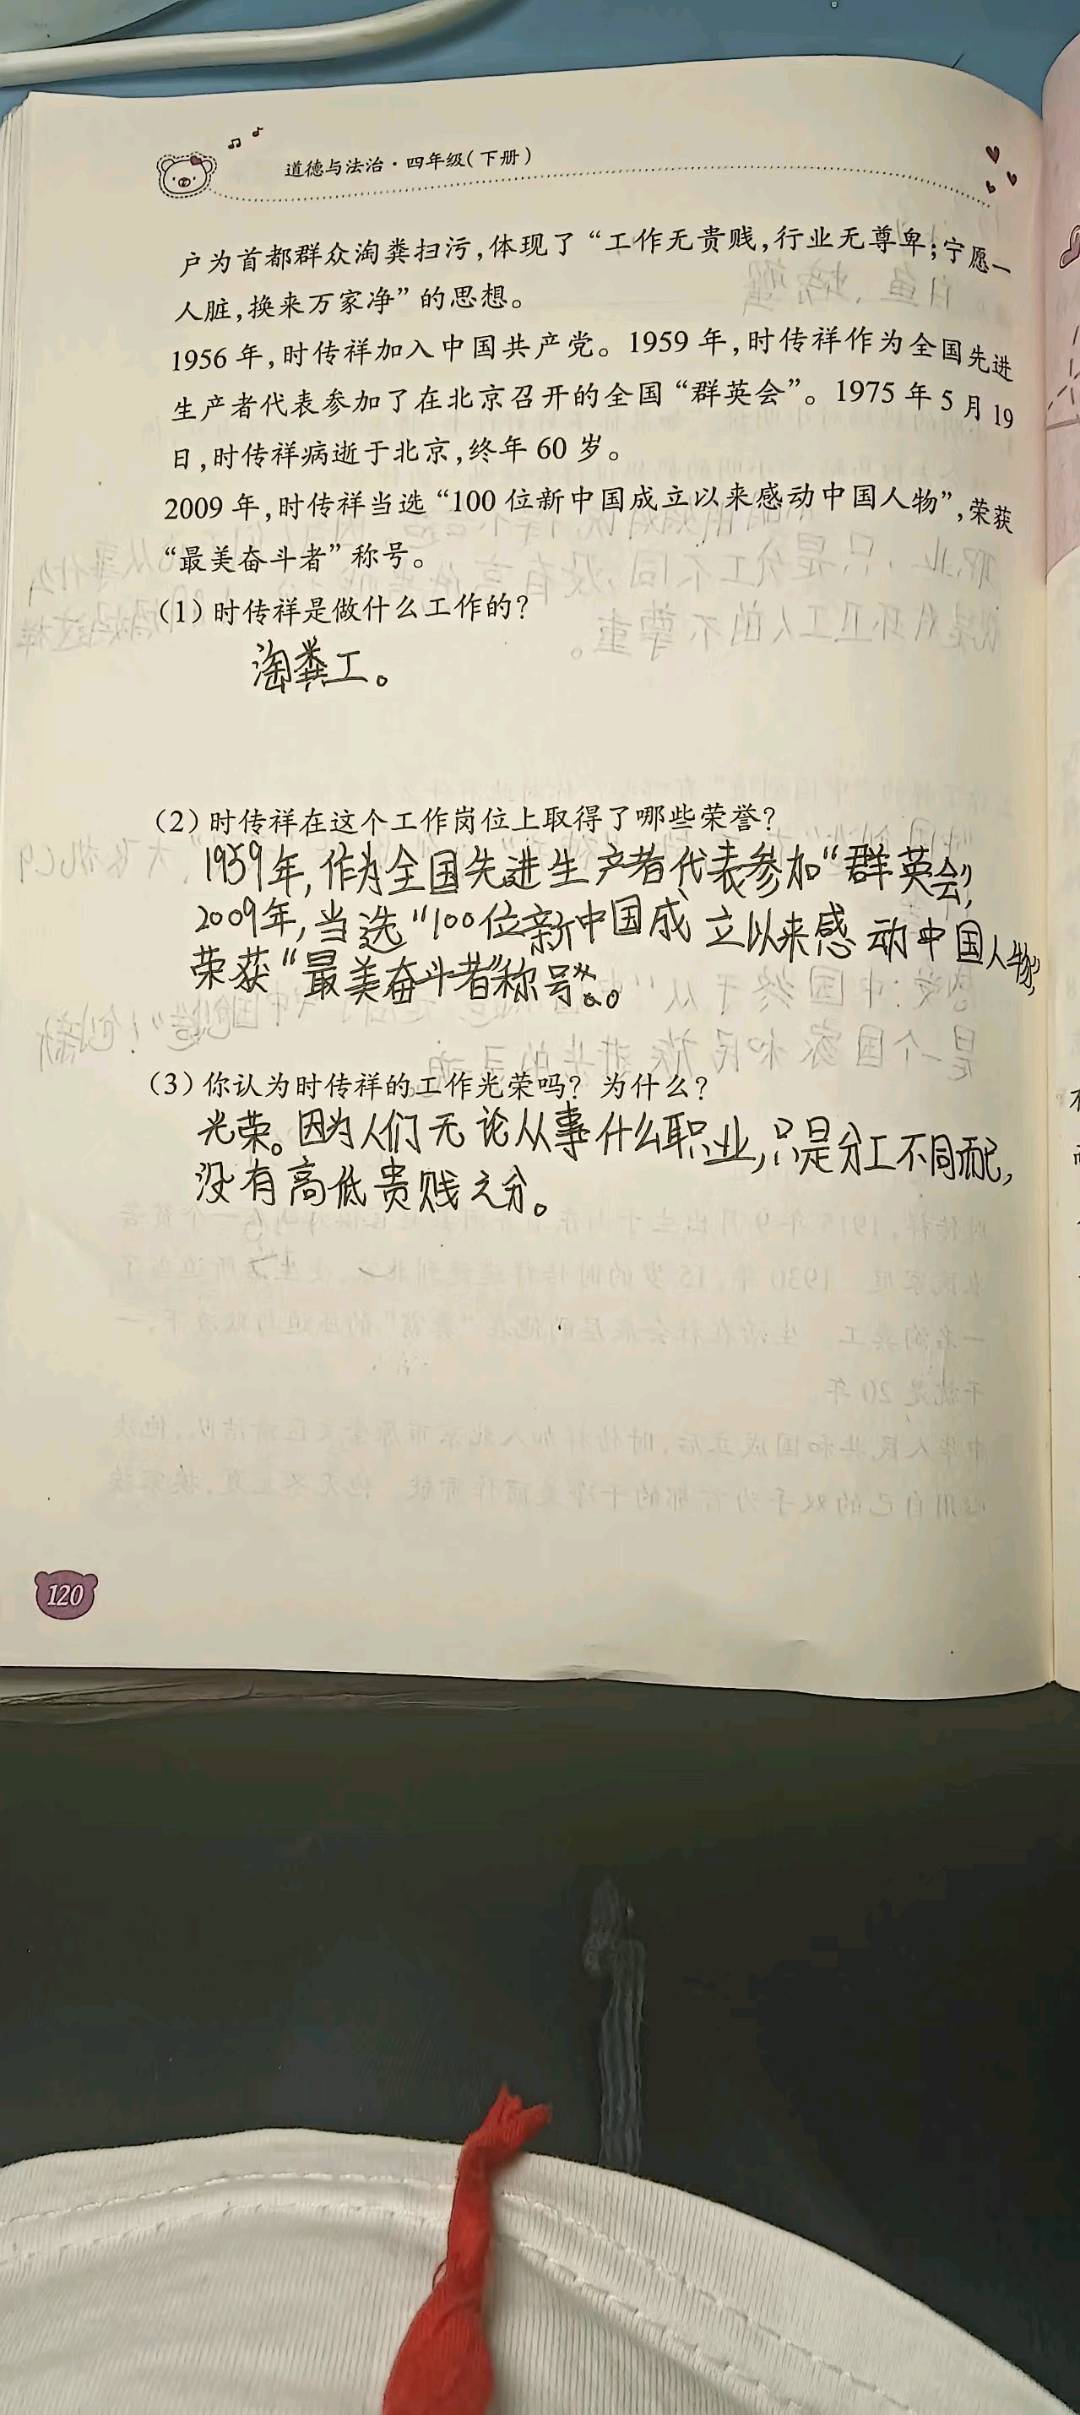 道德与法治·四年级(下册)
户为首都群众淘粪扫污,体现了“工作无贵贱,行业无尊卑;宁愿一
人脏,换来万家净”的思想。
1956年,时传祥加入中国共产党。1959年,时传祥作为全国先进
生产者代表参加了在北京召开的全国“群英会”。1975年5月19
日,时传祥病逝于北京,终年60岁。
2009年,时传祥当选“100位新中国成立以来感动中国人物”,荣获
“最美奋斗者”称号。
(1)时传祥是做什么工作的?
淘粪工。
(2)时传祥在这个工作岗位上取得了哪些荣誉?
1959年,作为全国先进生产者代表参加“群英会”,
2009年,当选“100位新中国成立以来感动中国人物”,
荣获“最美奋斗者”称号”。
(3)你认为时传祥的工作光荣吗?为什么?
光荣。因为人们无论从事什么职业,只是分工不同而已,
没有高低贵贱之分。
120